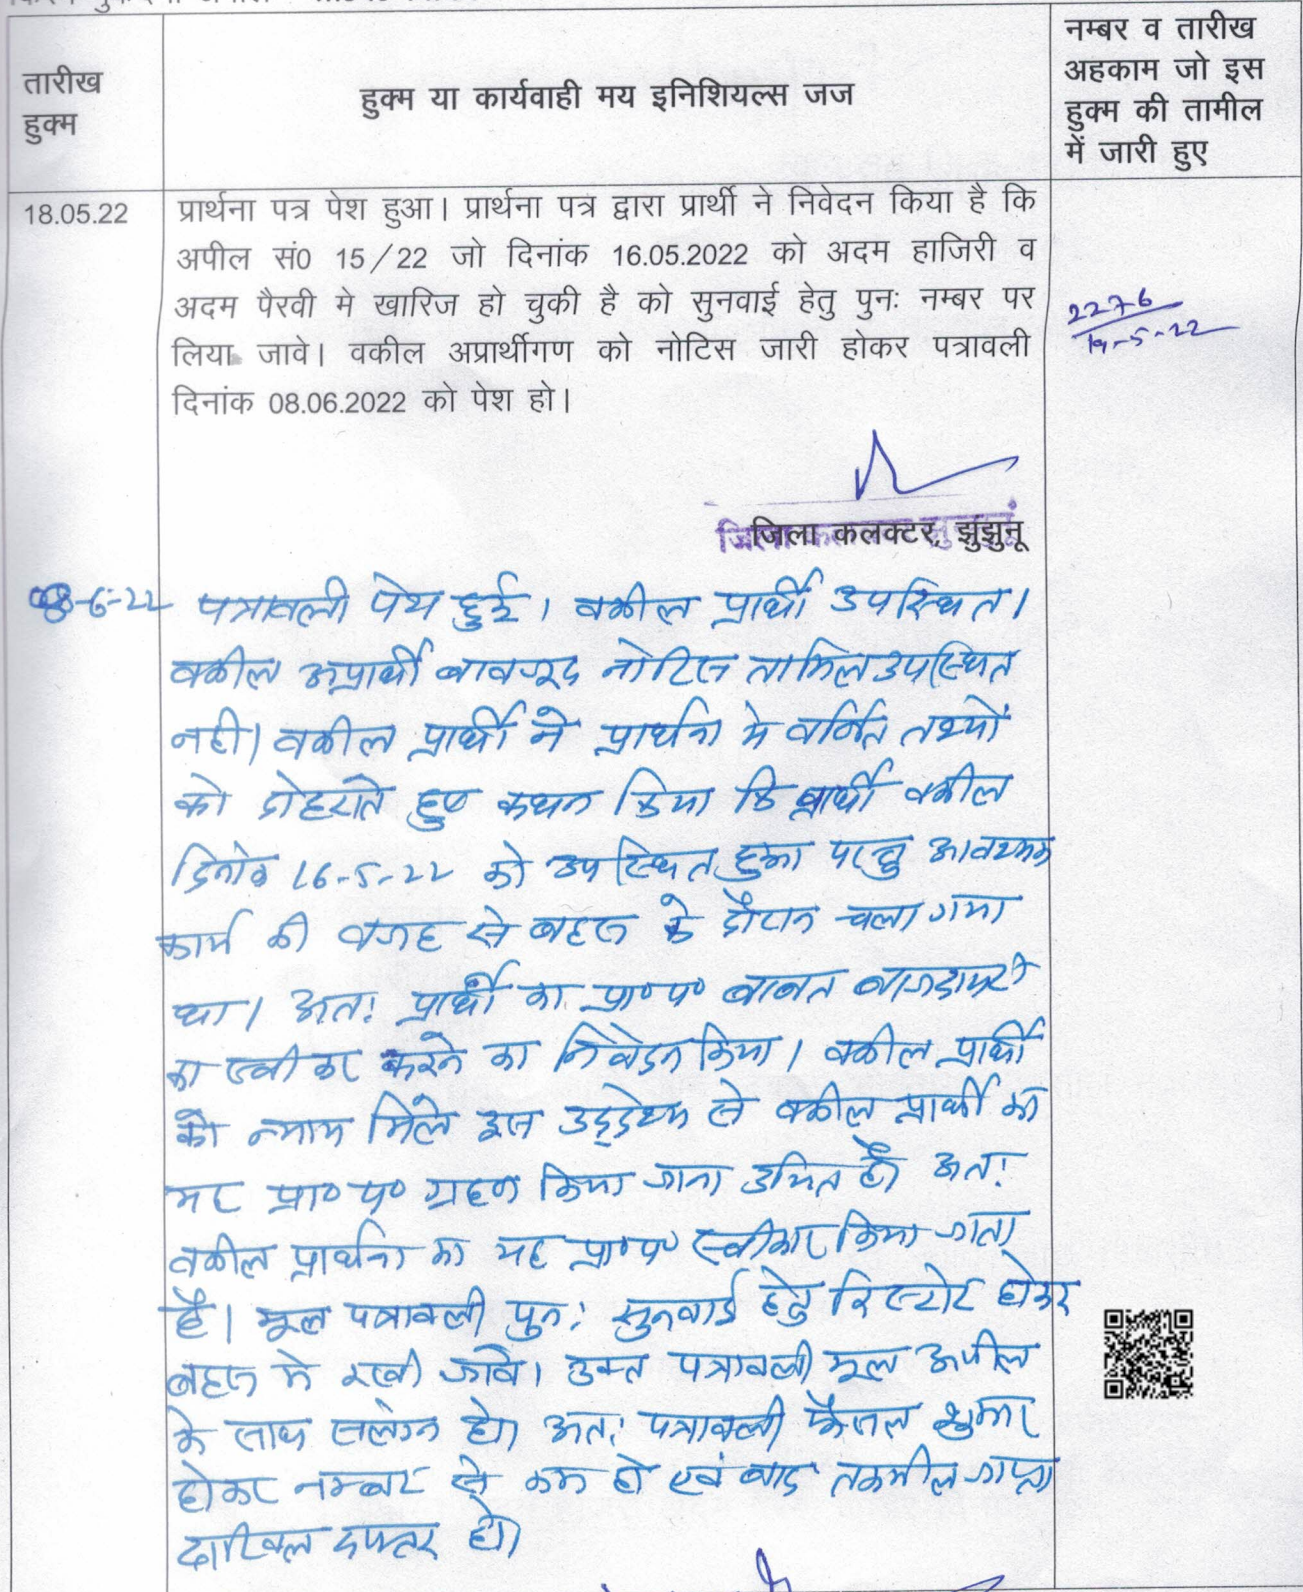 तारीख
हुक्म
हुक्म या कार्यवाही मय इनिशियल्स जज
नम्बर व तारीख
अहकाम जो इस
हुक्म की तामील
में जारी हुए
18.05.22
प्रार्थना पत्र पेश हुआ। प्रार्थना पत्र द्वारा प्रार्थी ने निवेदन किया है कि
अपील सं0 15/22 जो दिनांक 16.05.2022 को अदम हाजिरी व
अदम पैरवी मे खारिज हो चुकी है को सुनवाई हेतु पुनः नम्बर पर
लिया जावे। वकील अप्रार्थीगण को नोटिस जारी होकर पत्रावली
दिनांक 08.06.2022 को पेश हो।
2276
19-5-22
जिला कलक्टर, झुझुनू
08-6-22 पत्रावली पेश हुई। वकील प्रार्थी उपस्थित।
वकील अप्रार्थी बावजूद नोटिस तामिल उपस्थित
नही। वकील प्रार्थी ने प्रार्थना मे वर्णित तथ्यों
को दोहराते हुए कथन किया कि प्रार्थी वकील
दिनांक 16-5-22 को उपस्थित हुआ परन्तु आवश्यक
कार्य की वजह से बहस के दौरान चला गया
था। अतः प्रार्थी का प्रा०प० बाबत
का स्वीकार करने का निवेदन किया। वकील प्रार्थी
को न्याय मिले इस उद्देश्य से वकील प्रार्थी का
यह प्रा०प० ग्रहण किया जाना उचित है। अतः
वकील प्रार्थना का यह प्रा०प० स्वीकार किया जाता
है। मूल पत्रावली पुनः सुनवाई हेतु रिस्टोर होकर
बहस मे रखी जावे। उक्त पत्रावली मूल अपील
के साथ सलंग्न हो। अतः पत्रावली फैसल शुमार
होकर नम्बर से कम हो एवं बाद तकमील जाप्ता
दाखिल दफ्तर हो।